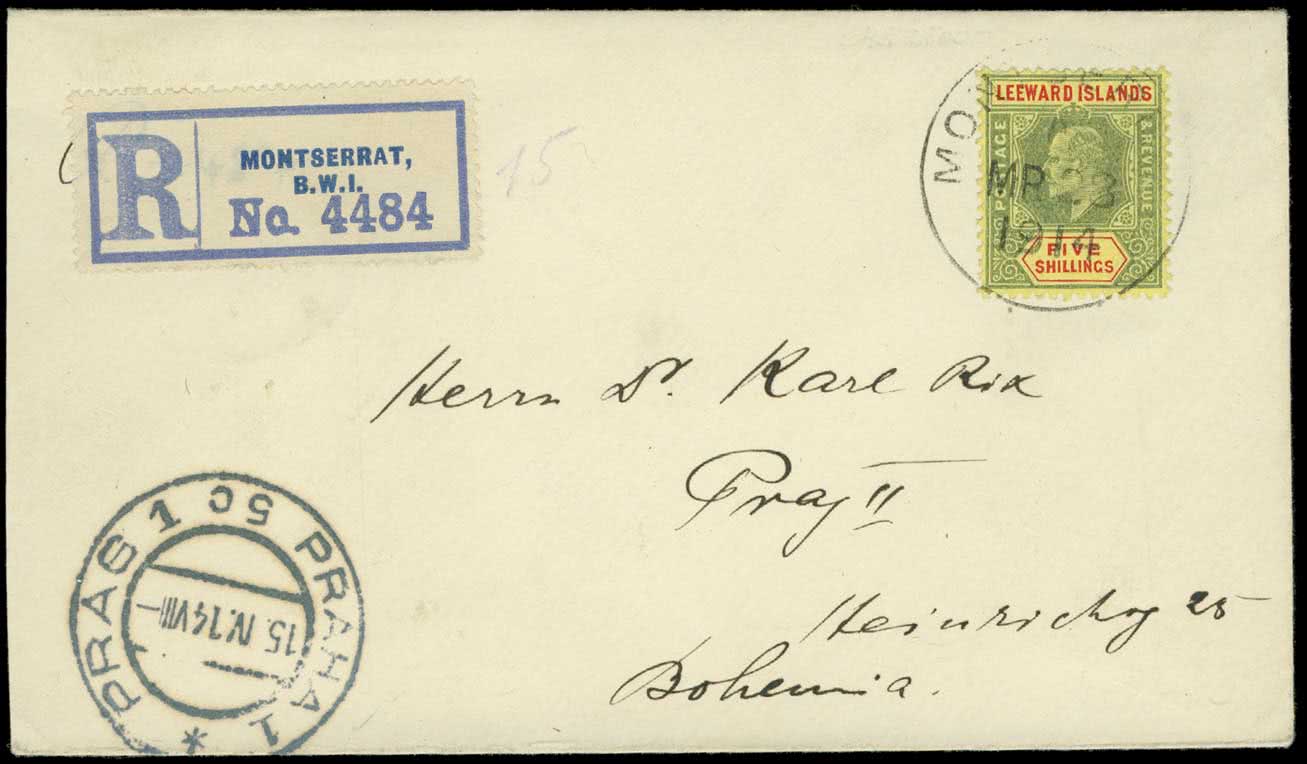 R
MONTSERRAT,
B.W.I.
No. 4484
15
LEEWARD ISLANDS
POSTAGE
& REVENUE
FIVE
SHILLINGS
MR 23
1914
Herrn Dr. Karl Rix
Prag II
Heinrichg 25
Bohemia.
PRAG 1 5c PRAHA 1
15.IV.14 VIII